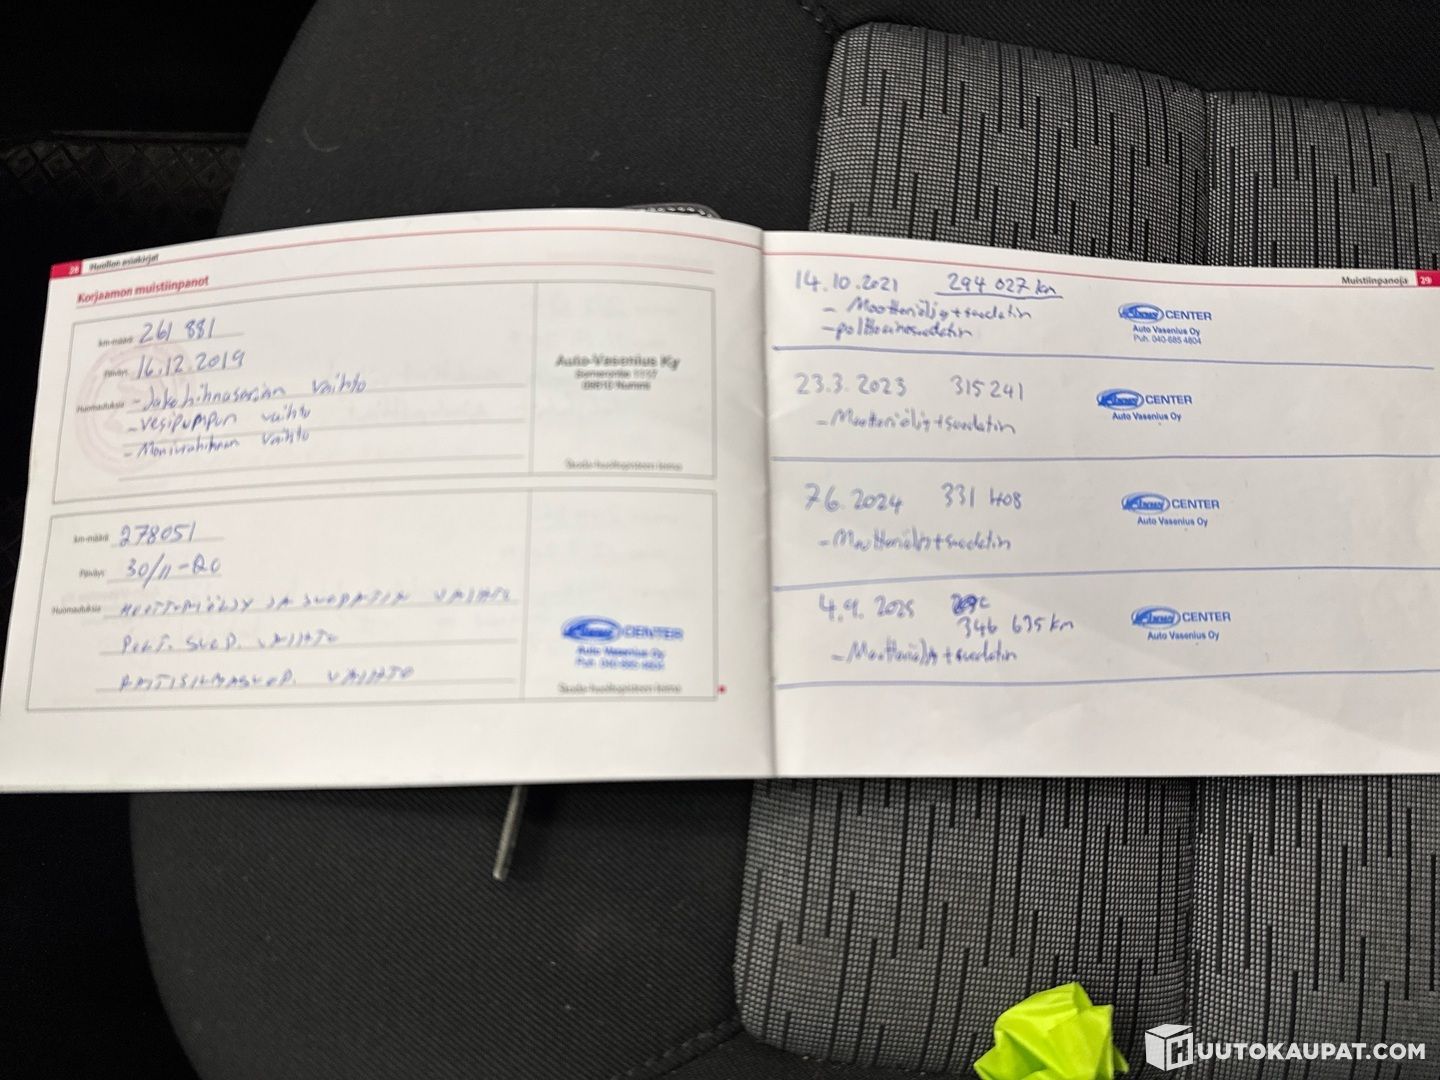 28 Huollon asiakirjat
Korjaamon muistiinpanot
km-määrä 261 881
Päiväys 16.12.2019
Huomautuksia - Jakohihnasarjan vaihto
- vesipumpun vaihto
- Moniurahihnan vaihto
Auto-Vasenius Ky
Nummi
km-määrä 278051
Päiväys 30/11-20
Huomautuksia MOOTTORIÖLJY JA SUODATIN VAIHTO
SUOD. VAIHTO
RAITISILMASUOD. VAIHTO
CENTER
Auto Vasenius Oy
Muistiinpanoja 29
14.10.2021 294 027 km
- Moottoriöljy + suodatin
- polttoainesuodatin
CENTER
Auto Vasenius Oy
Puh. 040-685 4804
23.3.2023 315241
- Moottoriöljy + suodatin
CENTER
Auto Vasenius Oy
7.6.2024 331 408
- Moottoriöljy + suodatin
CENTER
Auto Vasenius Oy
4.9.2025
346 635 km
- Moottoriöljy + suodatin
CENTER
Auto Vasenius Oy
HUUTOKAUPAT.COM